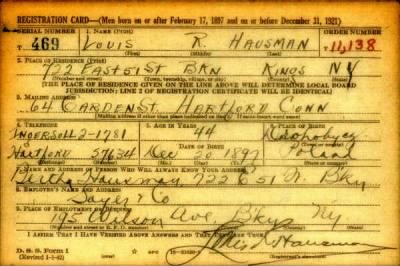 REGISTRATION CARD—(Men born on or after February 17, 1897 and on or before December 31, 1921)
SERIAL NUMBER 1. NAME (Print) ORDER NUMBER
T 469 LOUIS R. HAUSMAN 11,138
(First) (Middle) (Last)
2. PLACE OF RESIDENCE (Print)
722 EAST 51 ST BKN KINGS NY
(Number and street) (Town, township, village, or city) (County) (State)
[THE PLACE OF RESIDENCE GIVEN ON THE LINE ABOVE WILL DETERMINE LOCAL BOARD
JURISDICTION; LINE 2 OF REGISTRATION CERTIFICATE WILL BE IDENTICAL]
3. MAILING ADDRESS
64 GARDEN ST. HARTFORD CONN
[Mailing address if other than place indicated on line 2. If same insert word same]
4. TELEPHONE 5. AGE IN YEARS 6. PLACE OF BIRTH
INGERSOLL 2-1781 44
DATE OF BIRTH
HARTFORD 57634 Dec 20 1897 Poland
(Exchange) (Number) (Mo.) (Day) (Yr.) (State or country)
7. NAME AND ADDRESS OF PERSON WHO WILL ALWAYS KNOW YOUR ADDRESS
Hausman, 722 E 51 St. Bkly
8. EMPLOYER'S NAME AND ADDRESS
& Co
9. PLACE OF EMPLOYMENT OR BUSINESS
195 Wilson Ave, Bklyn Ny
(Number and street or R. F. D. number) (Town) (County) (State)
I AFFIRM THAT I HAVE VERIFIED ABOVE ANSWERS AND THAT THEY ARE TRUE.
D. S. S. Form 1
(Revised 1-1-42) (over) Louis R. Hausman